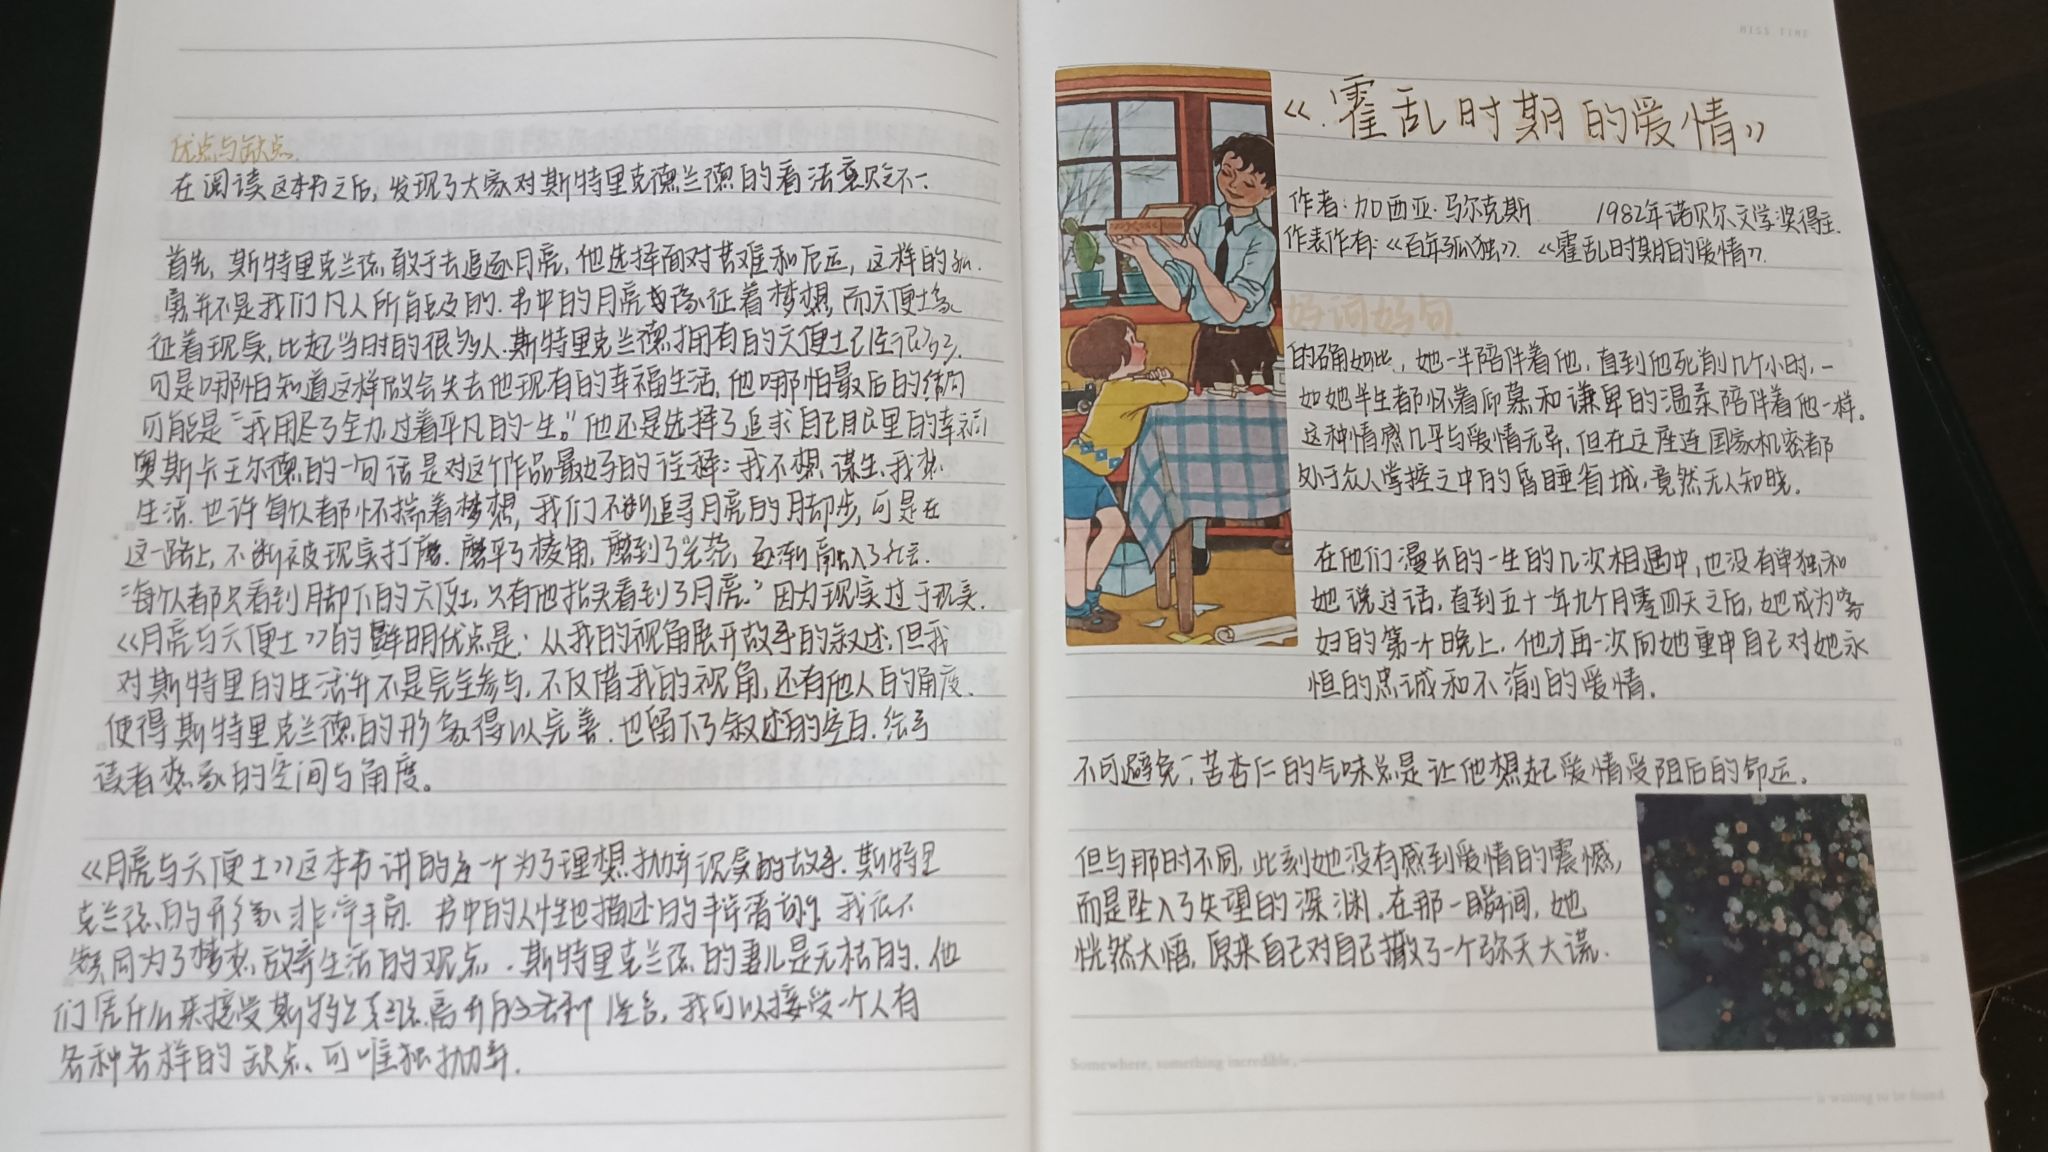 优点与缺点
在阅读这本书之后，发现了大家对斯特里克德兰德的看法褒贬不一．
首先，斯特里克兰德，敢于去追逐月亮，他选择面对苦难和厄运，这样的孤．
勇并不是我们凡人所能及的．书中的月亮象征着梦想，而六便士象
征着现实，比起当时的很多人．斯特里克兰德拥有的六便士已经很多了．
可是哪怕知道这样做会失去他现有的幸福生活，他哪怕最后的结局
可能是“我用尽了全力，过着平凡的一生。”他还是选择了追求自己眼里的幸福
奥斯卡王尔德的一句话是对这个作品最好的诠释：我不想谋生，我想
生活．也许每个人都怀揣着梦想，我们不断追寻月亮的脚步，可是在
这一路上，不断被现实打磨．磨平了棱角，磨到了光芒，逐渐融入了社会．
“每个人都只看到脚下的六便士，只有他抬头看到了月亮．”因为现实过于现实．
《月亮与六便士》的鲜明优点是：从我的视角展开故事的叙述，但我
对斯特里的生活并不是完全参与，不仅借我的视角，还有他人的角度．
使得斯特里克兰德的形象得以完善．也留下了叙述的空白．给予
读者想象的空间与角度。
《月亮与六便士》这本书讲的是一个为了理想抛弃现实的故事．斯特里
克兰德的形象非常丰满．书中的人性也描述的 我很不
赞同为了梦想放弃生活的观点．斯特里克兰德的妻儿是无辜的．他
们凭什么来接受斯特里克兰德离开的 ，我可以接受一个人有
各种各样的缺点、可唯独抛弃．
MISS TIME
《霍乱时期的爱情》
作者：加西亚·马尔克斯 1982年诺贝尔文学奖得主．
作表作有：《百年孤独》．《霍乱时期的爱情》．
好词好句．
的确如此，她一半陪伴着他，直到他死前几个小时，一
如她半生都怀着仰慕和谦卑的温柔陪伴着他一样。
这种情感几乎与爱情无异，但在这座连国家机密都
处于众人掌控之中的昏睡省城，竟然无人知晓．
在他们漫长的一生的几次相遇中，也没有单独和
她说过话，直到五十一年九个月零四天之后，她成为寡
妇的第一个晚上．他才再一次向她重申自己对她永
恒的忠诚和不渝的爱情．
不可避免，苦杏仁的气味总是让他想起爱情受阻后的命运．
但与那时不同，此刻她没有感到爱情的震憾，
而是坠入了失望的深渊．在那一瞬间，她
恍然大悟，原来自己对自己撒了一个弥天大谎．
Somewhere, something incredible,
is waiting to be found